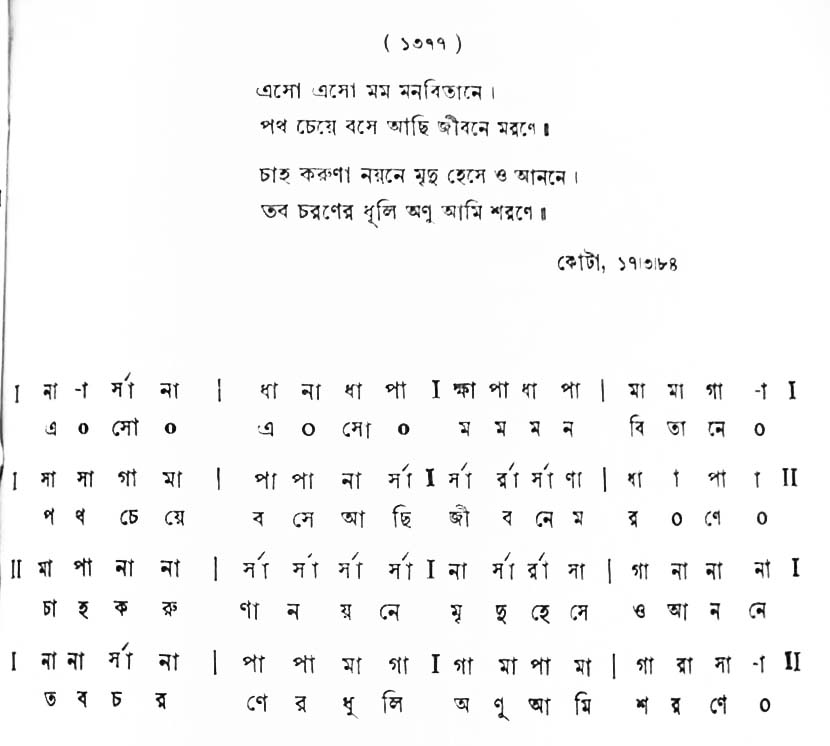 ( ১৩৭৭ )
এসো এসো মম মনবিতানে ।
পথ চেয়ে বসে আছি জীবনে মরণে ॥
চাহ করুণা নয়নে মৃদু হেসে ও আননে ।
তব চরণের ধূলি অণু আমি শরণে ॥
কোটা, ১৭।৩।৮৪
I না -া র্সা না | ধা না ধা পা I ক্ষা পা ধা পা | মা মা গা -া I
এ ০ সো ০ এ ০ সো ০ ম ম ম ন বি তা নে ০
I সা সা গা মা | পা পা না র্সা I র্সা র্রা র্সা ণা | ধা া পা া II
প থ চে য়ে ব সে আ ছি জী ব নে ম র ০ ণে ০
II মা পা না না | র্সা র্সা র্সা র্সা I না র্সা র্রা সা | গা না না না I
চা হ ক রু ণা ন য় নে মৃ দু হে সে ও আ ন নে
I না না র্সা না | পা পা মা গা I গা মা পা মা | গা রা সা -া II
ত ব চ র ণে র ধূ লি অ ণু আ মি শ র ণে ০